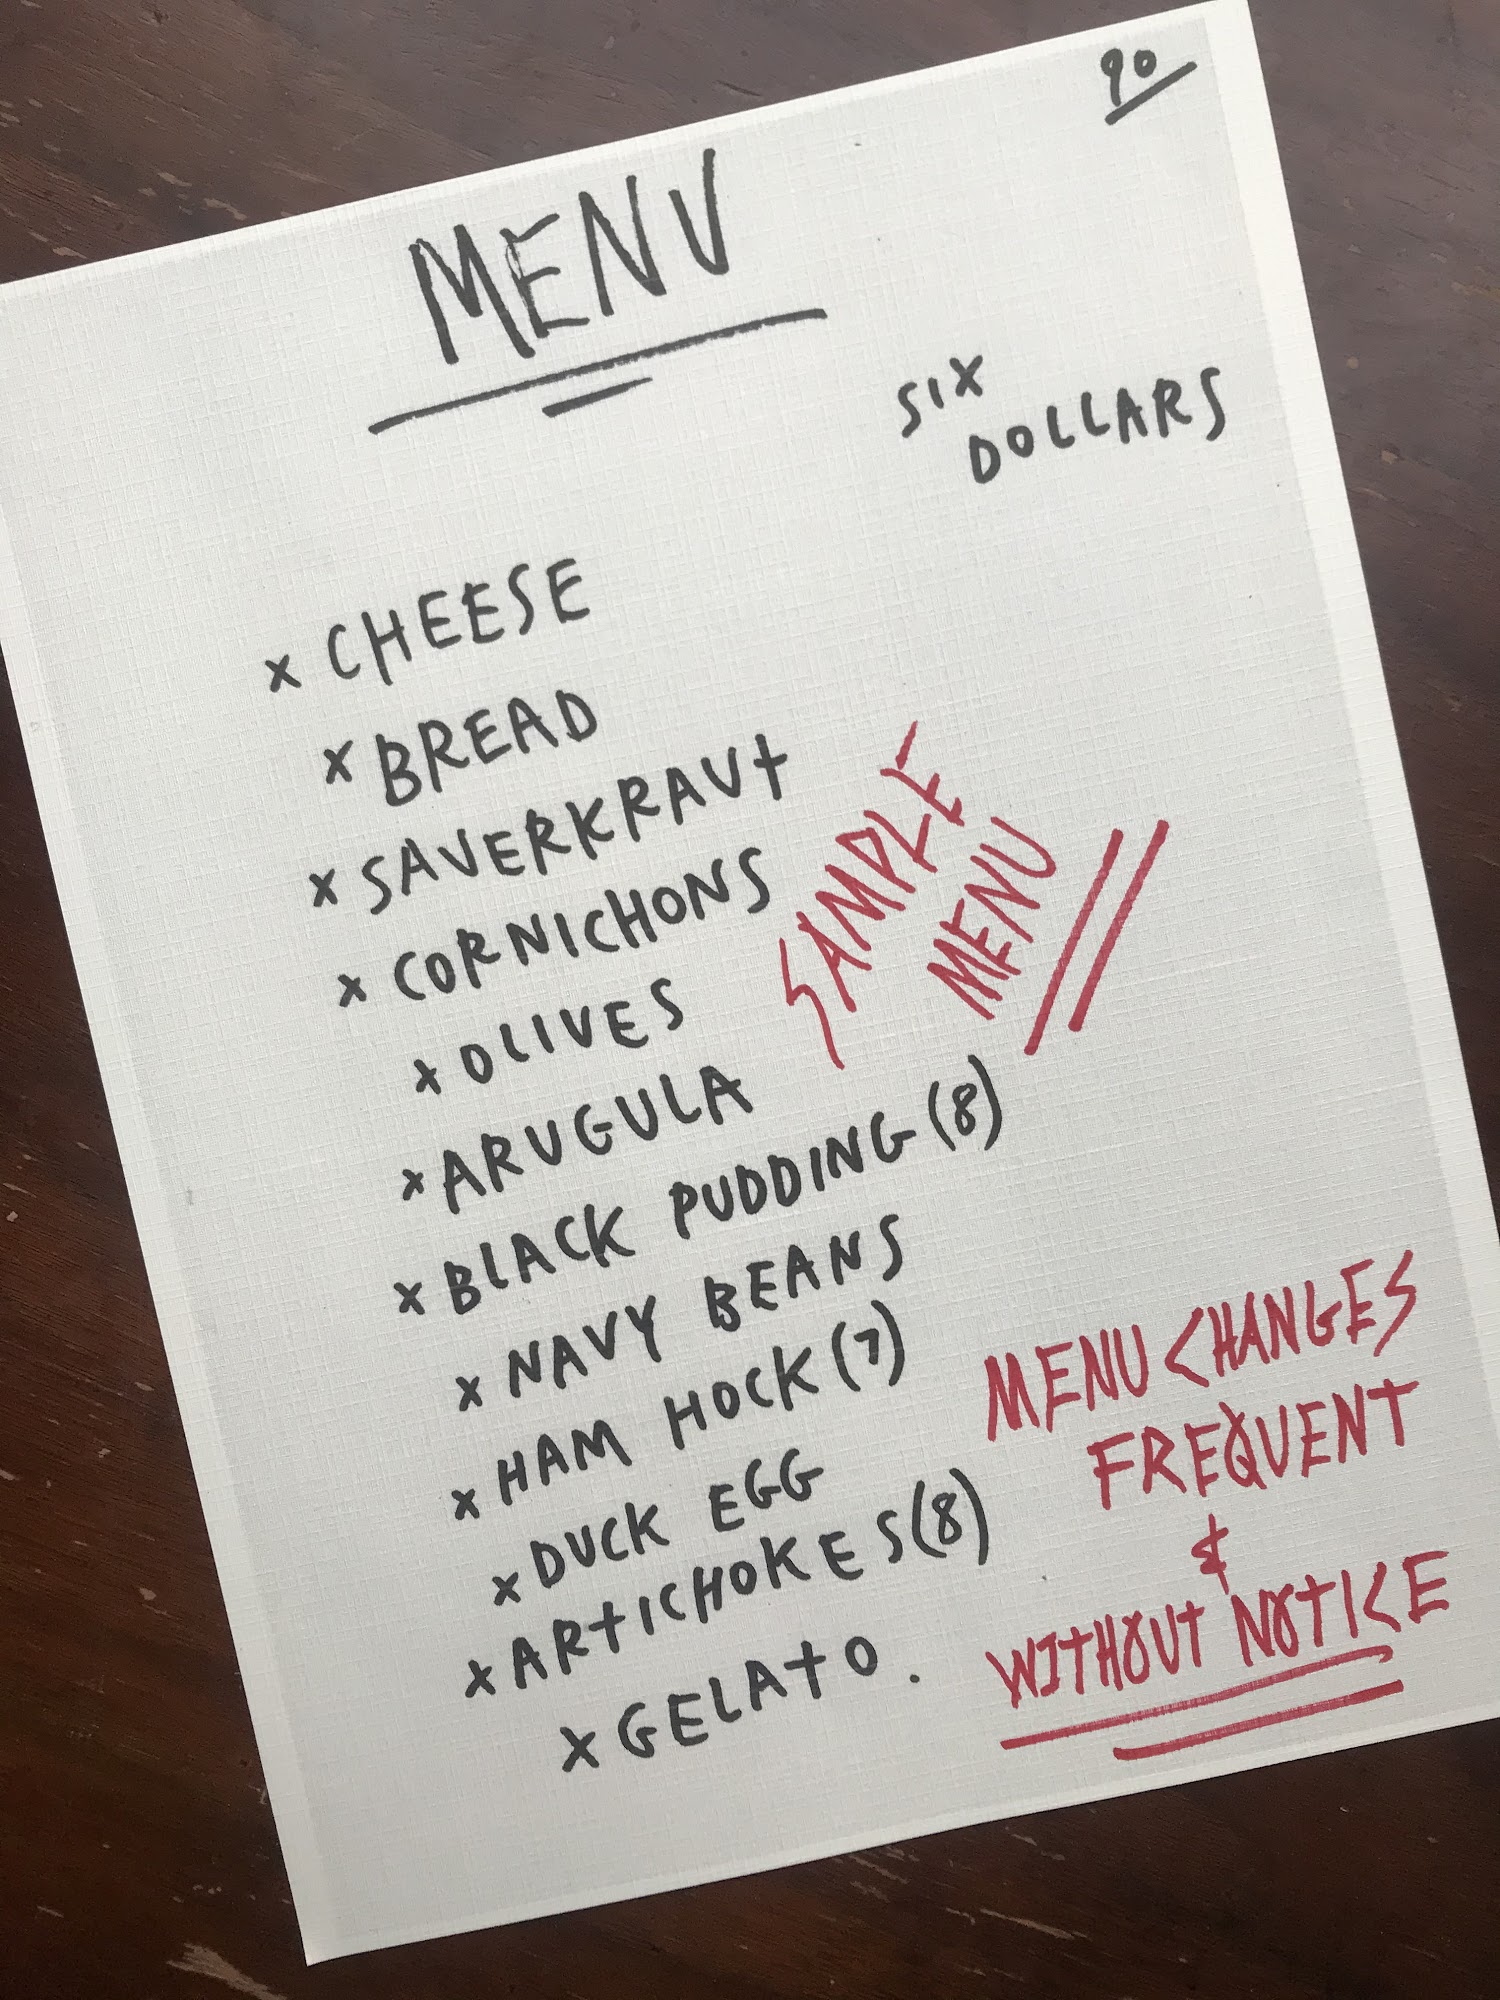 90
MENU
SIX
DOLLARS
x CHEESE
x BREAD
x SAUERKRAUt
x CORNICHONS
x OLIVES
x ARUGULA
x BLACK PUDDING (8)
x NAVY BEANS
x HAM HOCK (7)
x DUCK EGG
x ARtICHOKES (8)
x GELAtO.
SAMPLE
MENU
MENU CHANGES
FREQUENT
&
WITHOUT NOTICE